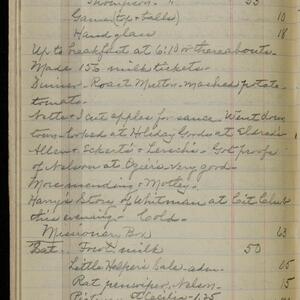 Thompson - 55
Game (top & balls) 10
Hand glass 18
Up to breakfast at 6:10 or thereabouts.
Made 150 milk tickets.
Dinner - Roast Mutton - mashed potato
tomato.
Nette & I cut apples for sauce. Went down
town - looked at Holiday Goods at
Allen & Eckert's - Lerch's - Got proofs
of Nelson at - very good -
More mending & Motley.
Harry's Story of Whitman at Cit Club
this evening - Cold -
Missionary Box 63
Bat. Fresh milk 50
Little Helpers bal. adm. 05
Rat penwiper, Nelson. 15
Cecilia - 1.25